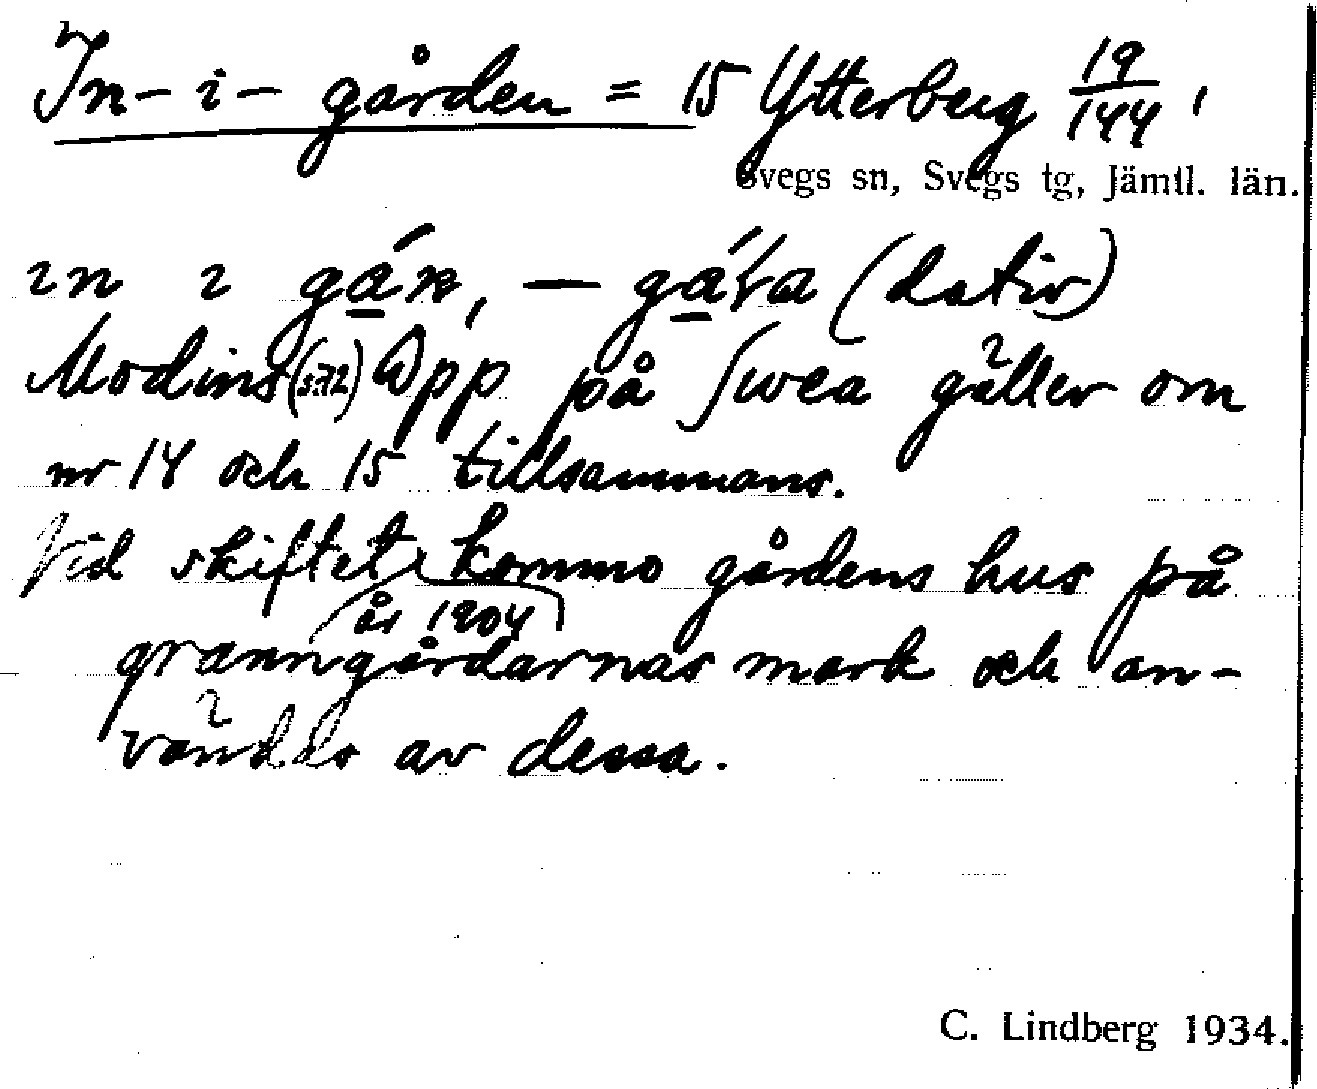 In-i-gården = 15 Ytterberg 19/144,
Svegs sn, Svegs tg, Jämtl. län.
ın ı gá̱n, — gá̱ɽa (dativ)
Modins (s. 72) Opp på ʃwea gäller om
nr 14 och 15 tillsammans.
Vid skiftet kommo gårdens hus på
år 1904
granngårdarnas mark och an-
vändes av dessa.
C. Lindberg 1934.